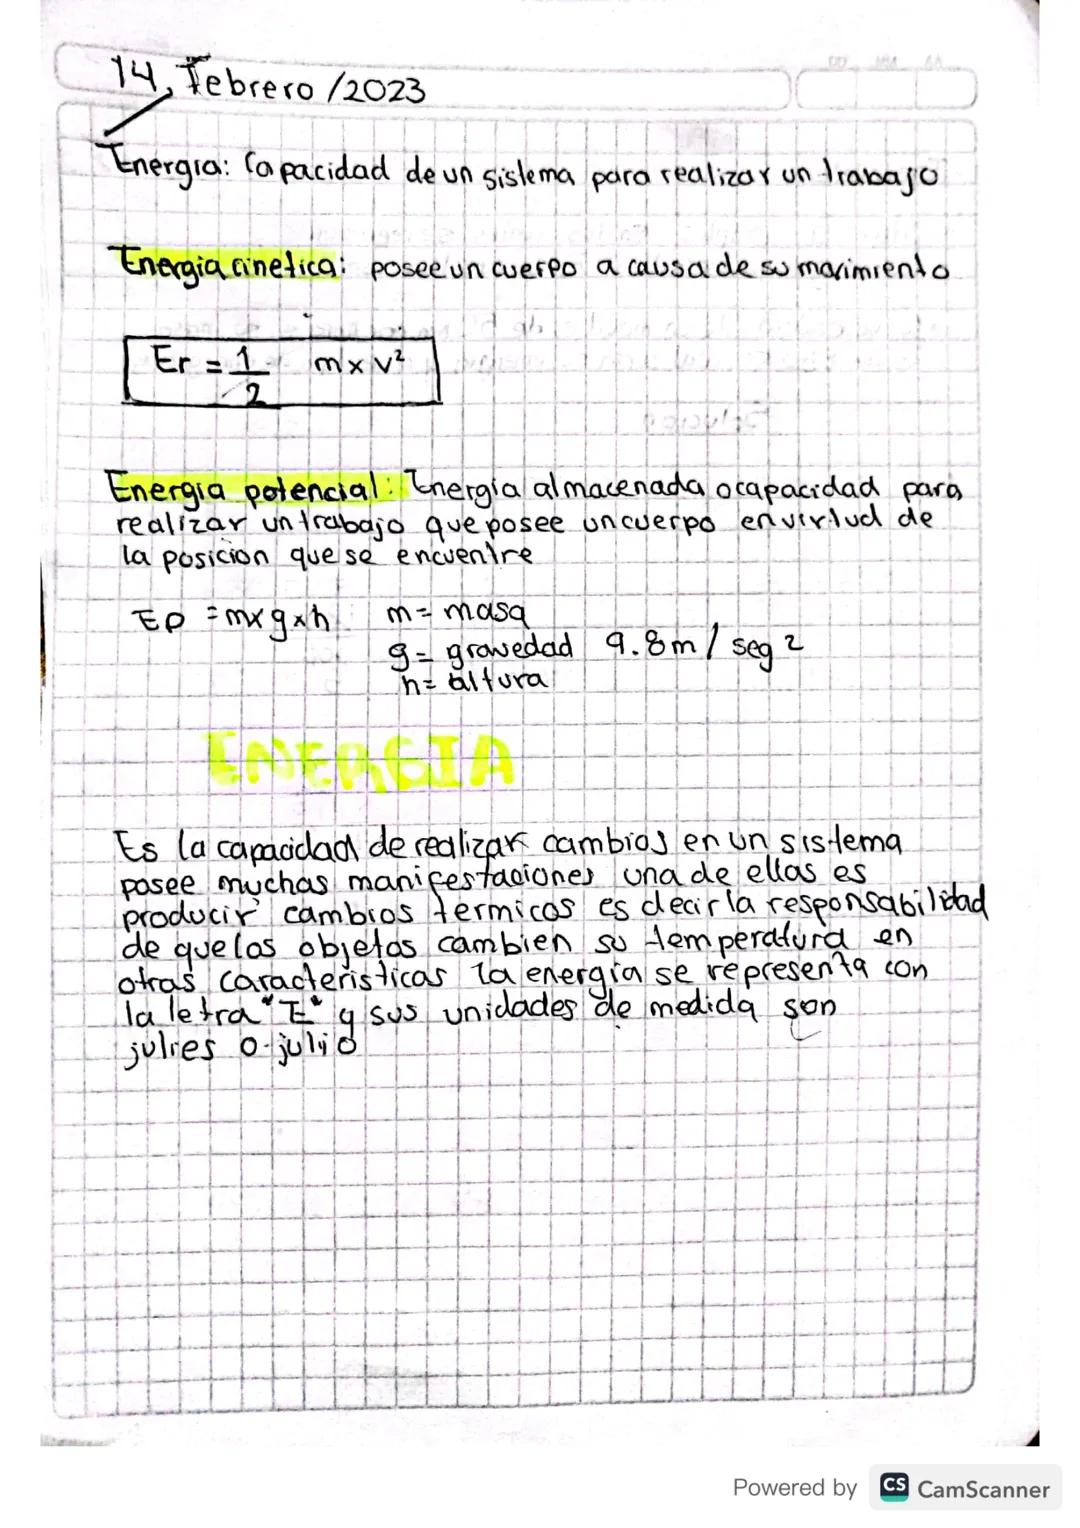 14, Febrero /2023
Energia: Capacidad de un sistema para realizar un trabajo
Energia cinetica: posee un cuerpo a causa de su movimiento
Er = 1/2 m x v²
Energia potencial: Energia almacenada o capacidad para
realizar un trabajo que posee un cuerpo en virtud de
la posicion que se encuentre
EP = m x g x h m = masa
g = gravedad 9.8 m / seg 2
h = altura
ENERGIA
Es la capacidad de realizar cambios en un sistema
posee muchas manifestaciones una de ellas es
producir cambios termicos es decir la responsabilidad
de que los objetos cambien su temperatura en
otras caracteristicas la energia se representa con
la letra "E" y sus unidades de medida son
julies o julio
Powered by CS CamScanner